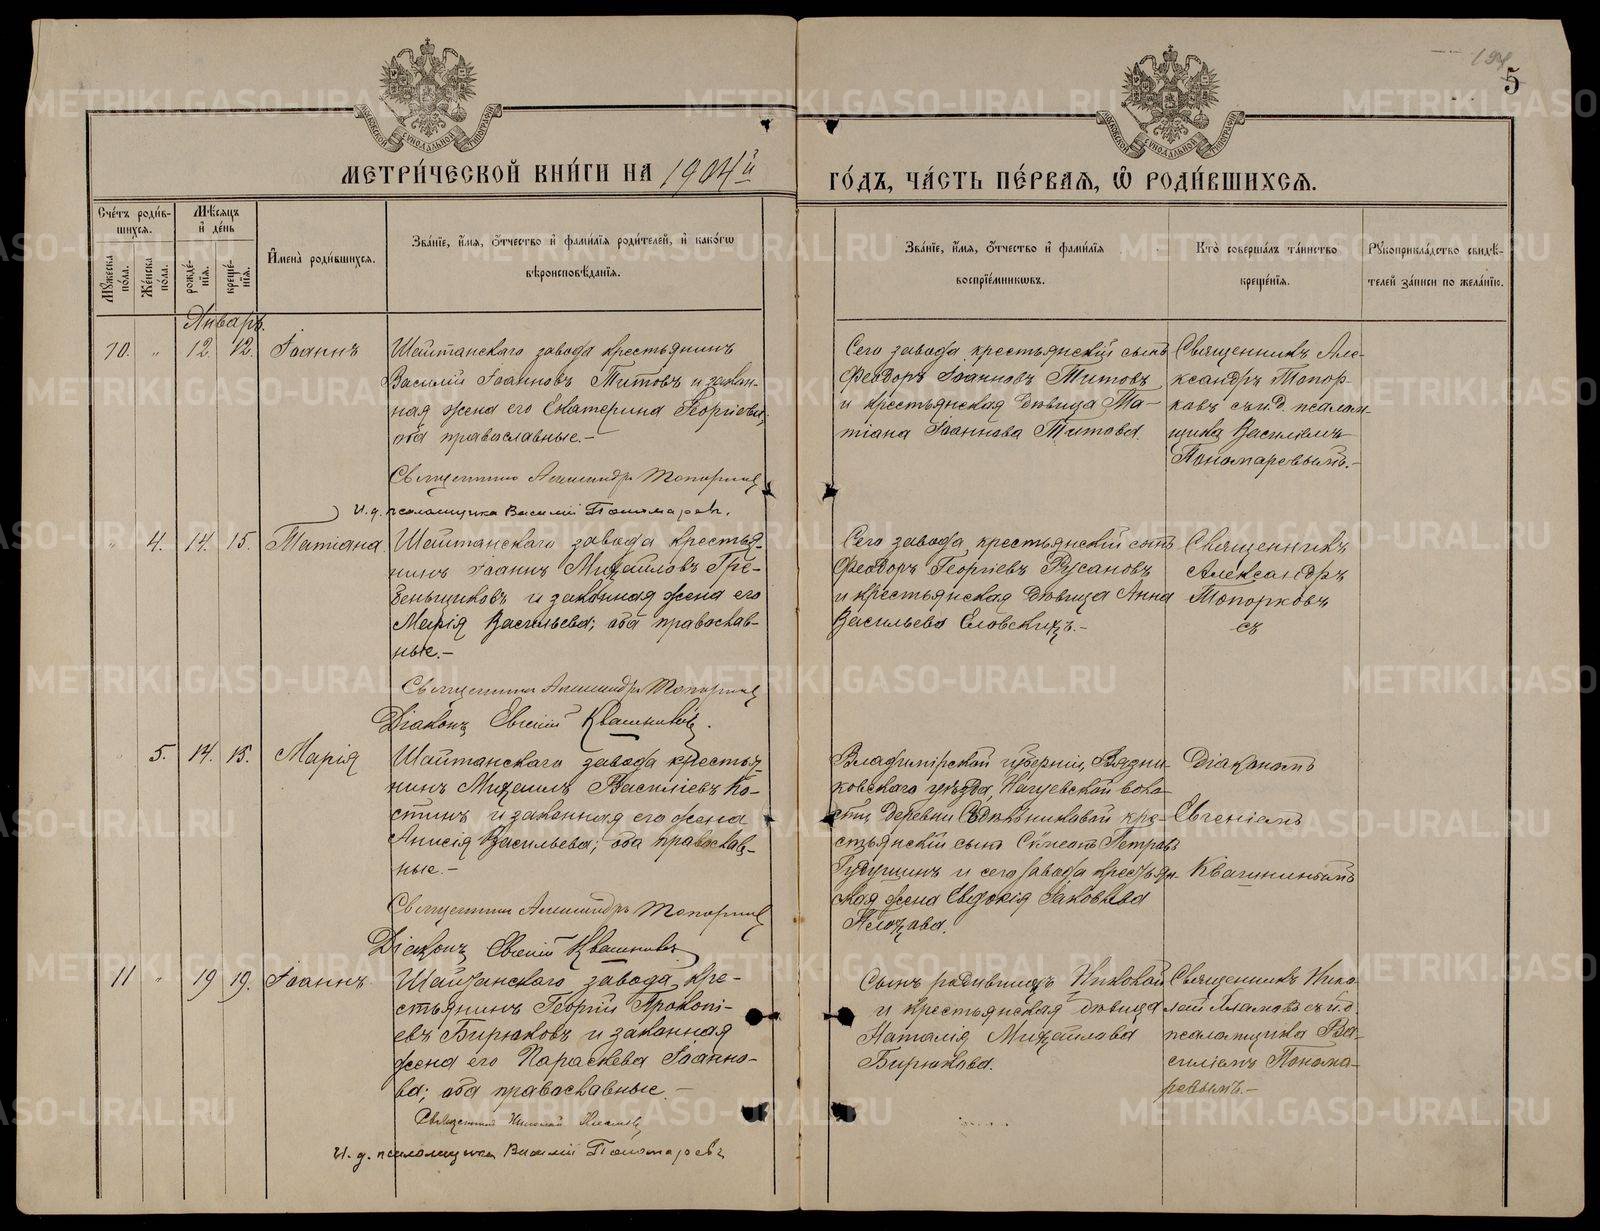 194
5
МЕТРИ́ЧЕСКОЙ КНИ́ГИ НА 1904й
ГО́ДЪ, ЧА́СТЬ ПЕ́РВАЯ, Ѡ҆ РОДИ́ВШИХСЯ.
Сче́тъ роди́вшихся.
Мꙋ́жеска по́ла.
Же́нска по́ла.
Мѣ́сяцъ и҆ де́нь
рожде́нїя.
креще́нїя.
И҆мена̀ роди́вшихся.
Зва́нїе, и҆́мя, ѻ҆́тчество и҆ фами́лїя роди́телей, и҆ како́гѡ
вѣроисповѣ́данїя.
Зва́нїе, и҆́мя, ѻ҆́тчество и҆ фами́лїя
воспрїе́мникѡвъ.
Кто̀ соверша́лъ та́инство
креще́нїя.
Рꙋкоприкла́дство свидѣ́-
телей за́писи по жела́нїю.
Январь.
10. " 12. 12. Іоаннъ
Шайтанскаго завода крестьянинъ
Василій Іоанновъ Титовъ и закон-
ная жена его Екатерина Георгіева;
оба православные.-
Священникъ Александръ Топорковъ
И. д. псаломщика Василій Пономаревъ.
Сего завода крестьянскій сынъ
Ѳеодоръ Іоанновъ Титовъ
и крестьянская дѣвица Та-
тіана Іоаннова Титова.
Священникъ Але-
ксандръ Топор-
ковъ съ и.д. псалом-
щика Василіемъ
Пономаревымъ.-
" 4. 14. 15. Татіана
Шайтанскаго завода крестья-
нинъ Іоаннъ Михаиловъ Гре-
бенщиковъ и законная жена его
Марія Васильева; оба православ-
ные.-
Священникъ Александръ Топорковъ
Діаконъ Евгеній Квашнинъ.
Сего завода крестьянскій сынъ
Ѳеодоръ Георгіевъ Русановъ
и крестьянская дѣвица Анна
Васильева Еловскихъ.-
Священникъ
Александръ
Топорковъ
съ
5. 14. 15. Марія
Шайтанскаго завода крестья-
нинъ Михаилъ Василіевъ Ко-
стинъ и законная его жена
Анисія Васильева; оба православ-
ные.-
Священникъ Александръ Топорковъ
Діаконъ Евгеній
Владимірской губерніи, Вязни-
ковскаго уѣзда, воло-
сти, деревни кре-
стьянскій сынъ Петровъ
и сего завода крестьян-
ская жена Евдокія Іаковлева
Діакономъ
Евгеніемъ
11 " 19 19. Іоаннъ
Шайтанскаго завода кре-
стьянинъ Георгій Прокопі-
евъ Бирюковъ и законная
жена его Параскева Іоанно-
ва; оба православные.-
Священникъ Николай
И. д. псаломщика Василій Пономаревъ
Сынъ родившихъ Николай
и крестьянская дѣвица
Наталія Михайлова
Бирюкова.
Священникъ Нико-
лай съ и.д.
псаломщика Ва-
силіемъ Понома-
ревымъ.-
METRIKI.GASO-URAL.RU